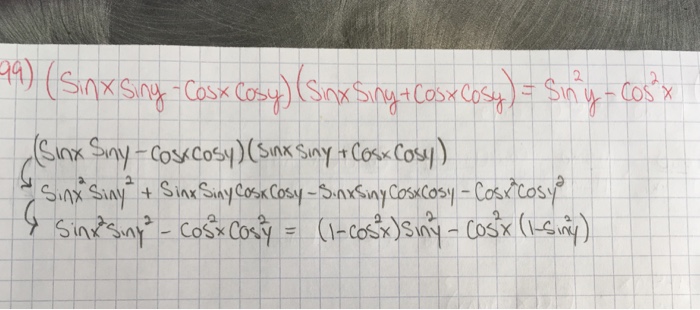 99) (Sinx Siny - Cosx Cosy)(Sinx Siny + Cosx Cosy) = Sin²y - Cos²x
(Sinx Siny - Cosx Cosy)(Sinx Siny + Cosx Cosy)
Sinx² Siny² + Sinx Siny Cosx Cosy - Sinx Siny Cosx Cosy - Cosx² Cosy²
Sinx² Siny² - Cos²x Cos²y = (1-Cos²x) Sin²y - Cos²x (1-Sin²y)